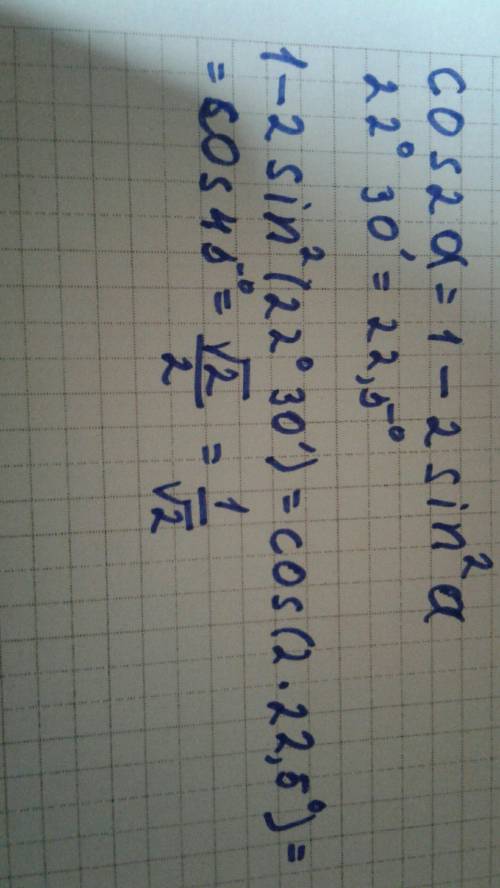 cos2α = 1 - 2 sin²α
22° 30' = 22,5°
1 - 2 sin²(22° 30') = cos(2·22,5°) =
= cos45° = √2/2 = 1/√2